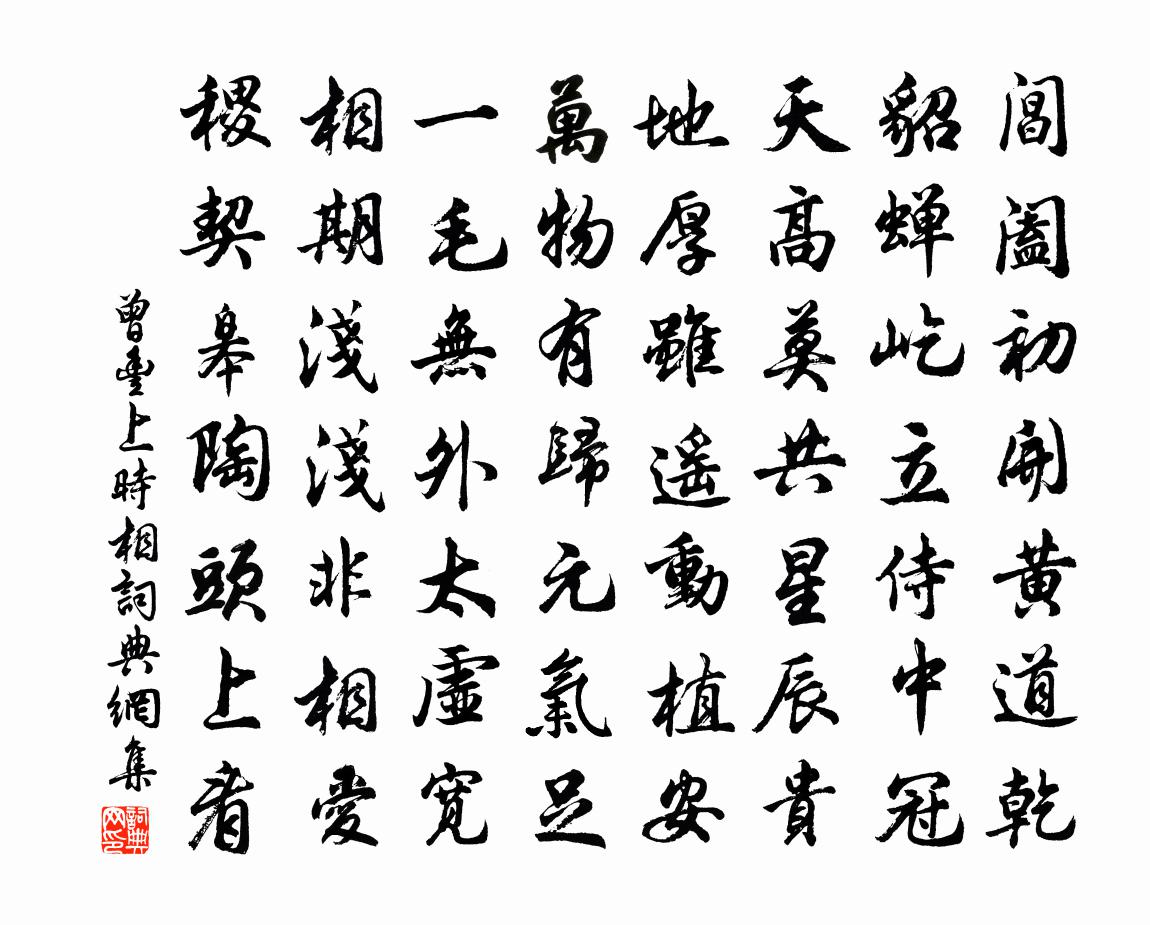 閶闔初開黄道乾
貂蟬屹立侍中冠
天高莫共星辰貴
地厚雖遥動植安
萬物有歸元氣足
一毛無外太虛寬
相期淺淺非相愛
稷契皋陶頭上看
曾豊上時相詞典網集
詞典
网印